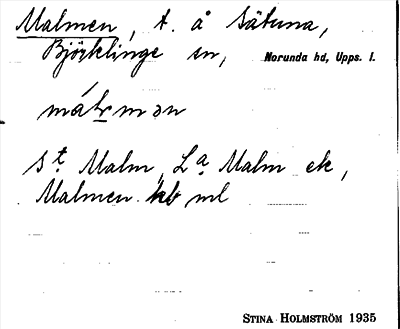 Malmen, t. å Sätuna,
Björklinge sn, Norunda hd, Upps. l.
St. Malm, La. Malm ek,
Malmen kb ml
STINA HOLMSTRÖM 1935